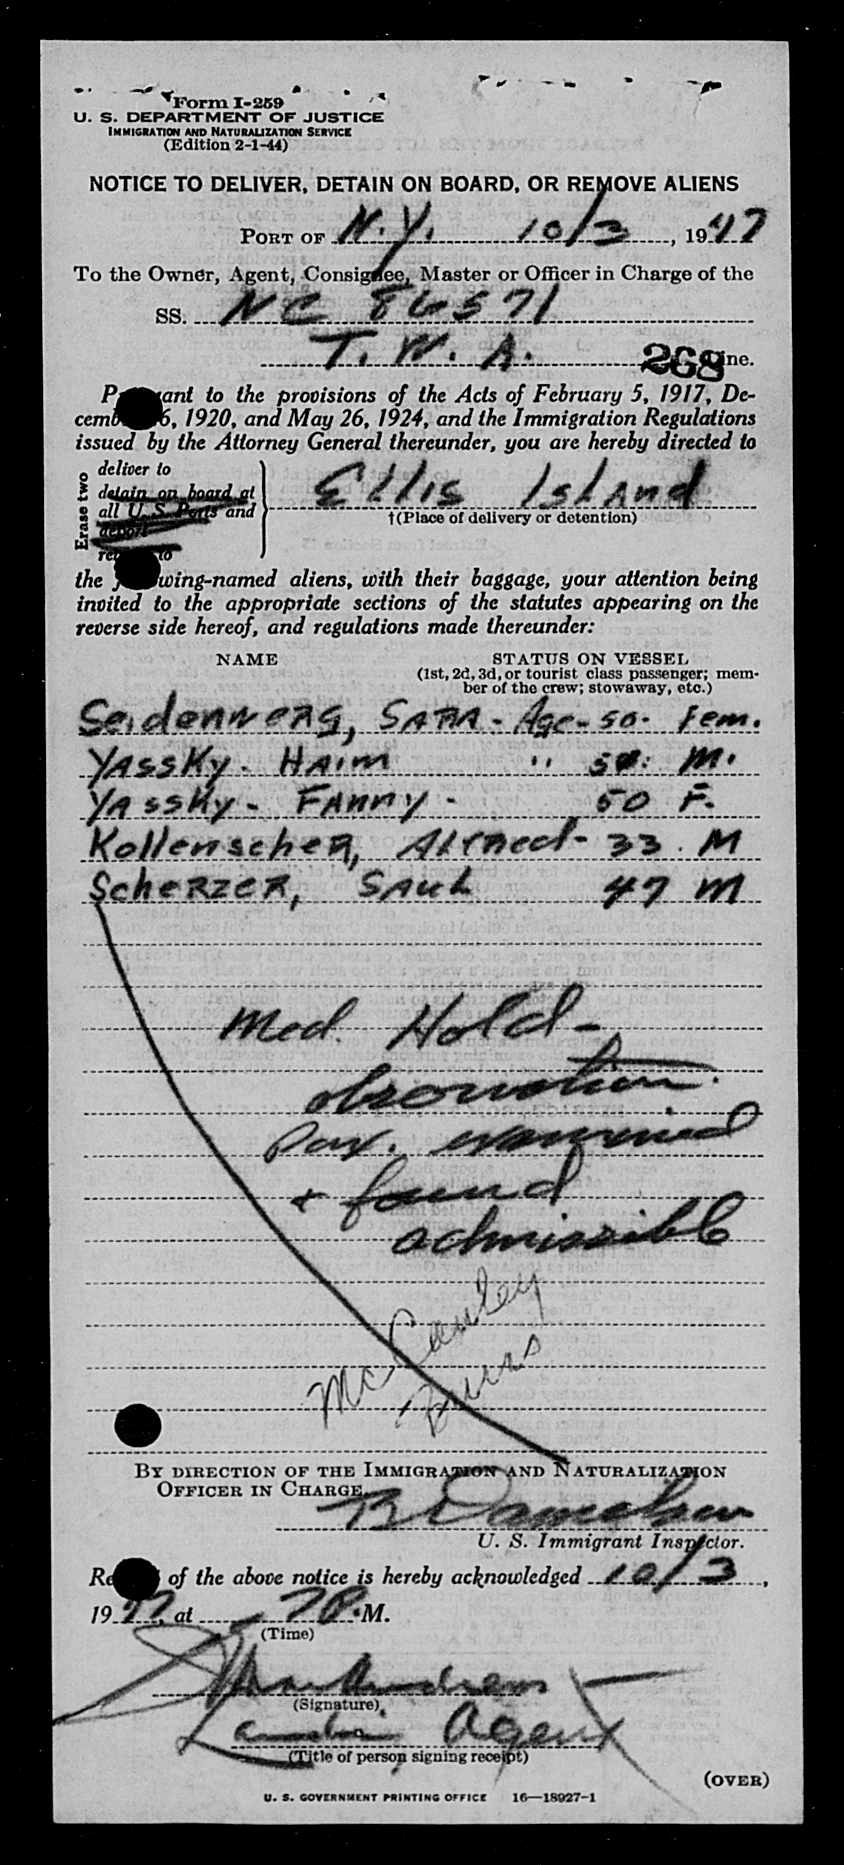 Form I-259
U. S. DEPARTMENT OF JUSTICE
IMMIGRATION AND NATURALIZATION SERVICE
(Edition 2-1-44)
NOTICE TO DELIVER, DETAIN ON BOARD, OR REMOVE ALIENS
PORT OF N.Y. 10/3, 1947
To the Owner, Agent, Consignee, Master or Officer in Charge of the
SS. NC 86571
T. W. A. 268 ine.
P ant to the provisions of the Acts of February 5, 1917, De-
cemb 6, 1920, and May 26, 1924, and the Immigration Regulations
issued by the Attorney General thereunder, you are hereby directed to
Erase two
deliver to
detain on board at
all U. S. Ports and
deport
re to
Ellis Island
†(Place of delivery or detention)
the f wing-named aliens, with their baggage, your attention being
invited to the appropriate sections of the statutes appearing on the
reverse side hereof, and regulations made thereunder:
NAME STATUS ON VESSEL
(1st, 2d, 3d, or tourist class passenger; mem-
ber of the crew; stowaway, etc.)
SARA - Age - 50 - Fem.
YASSKY - HAIM " M.
YASSKY - FANNY - 50 F.
Kollenscher, Alfred - 33. M
Scherzer, SAUL 47 M
Med. Hold -
observation.
Pax. examined
+ found
admissible
McCauley
Burns
BY DIRECTION OF THE IMMIGRATION AND NATURALIZATION
OFFICER IN CHARGE
U. S. Immigrant Inspector.
Re of the above notice is hereby acknowledged 10/3,
1947, at 7P.M.
(Time)
(Signature)
Agent
(Title of person signing receipt)
(OVER)
U. S. GOVERNMENT PRINTING OFFICE 16—18927-1